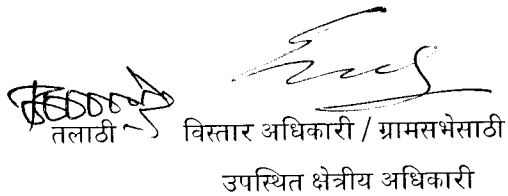 तलाठी विस्तार अधिकारी / ग्रामसभेसाठी
उपस्थित क्षेत्रीय अधिकारी